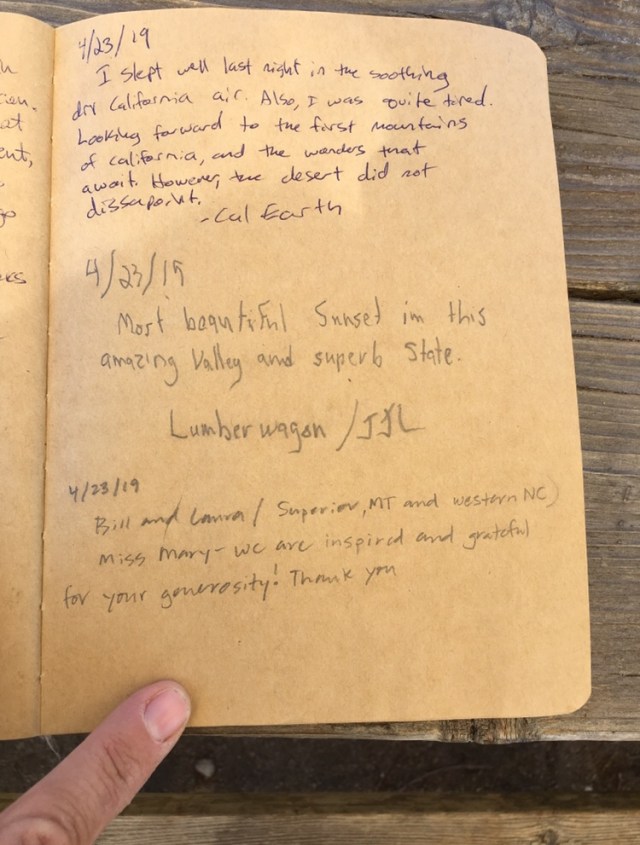 h
ien.
at
ent,
go
ks
4/23/19
I slept well last night in the soothing
dry California air. Also, I was quite tired.
Looking forward to the first mountains
of california, and the wonders that
await. However, the desert did not
dissapoint.
-Cal Earth
4/23/19
Most beautiful Sunset in this
amazing Valley and superb State.
Lumberwagon /JJL
4/23/19
Bill and Laura / Superior, MT and western NC)
Miss Mary- we are inspired and grateful
for your generosity! Thank you